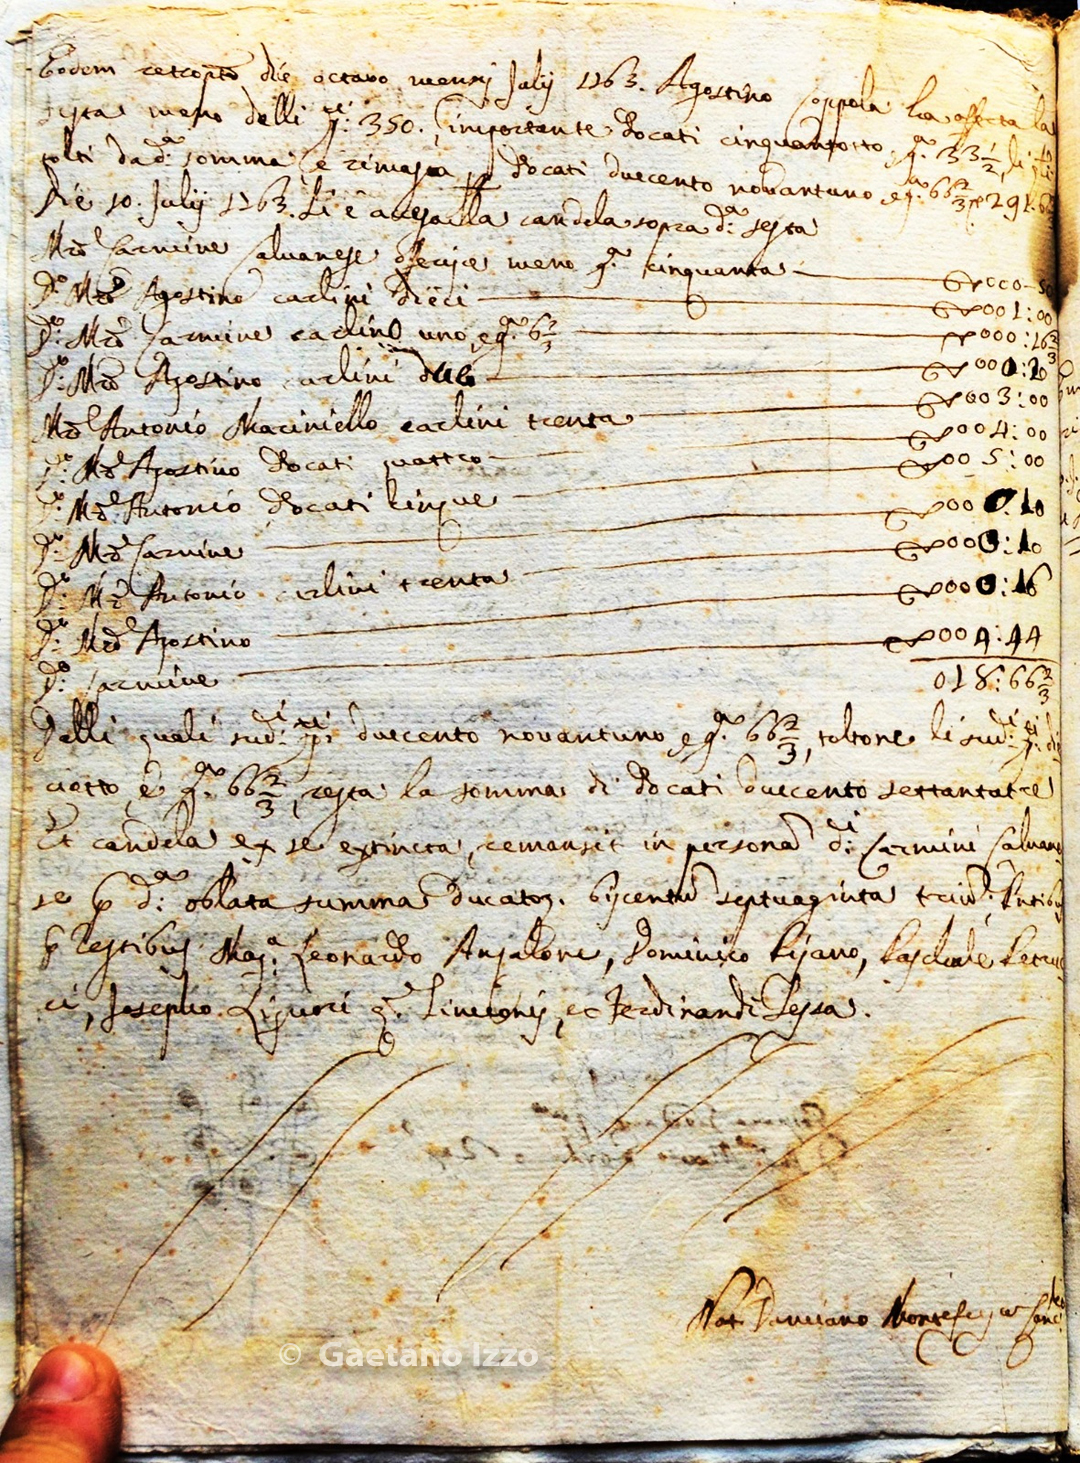 Eodem retropto die octavo mensis July 1763. Agostino Coppola ha offerta la
sesta meno delli 350. importante Docati cinquantotto, e g.a 33 1/2, li
tolti da d.a somma è rimasta p Docati duecento novantuno e g.a 66 2/3 291.66
Die 10. July 1763. Si è accesa la candela sopra d.a sesta
M.ro Carmine Calvanese offerisce meno g.a cinquanta 000-50
D.o M.ro Agostino carlini Dieci 001:00
D.o M.ro Carmine carlino uno, e g.a 6 2/3 000:16 2/3
D.o M.ro Agostino carlini due
M.ro Antonio Marciniello carlini trenta 003:00
D.o M.ro Agostino Docati quattro 004:00
D.o M.ro Antonio Docati cinque 005:00
D.o M.ro Carmine 000:10
D.o M.ro Antonio carlini trenta 000:10
D.o M.ro Agostino 000:16
D.o Carmine 004:44
018:66 2/3
Dalli quali sud.i duecento novantuno e g.a 66 2/3, toltone li sud.i di
ciotto, e g.a 66 2/3, resta la somma di Docati duecento settantatre
Et candela ex se extincta, remansit in persona d.i Carmini Calvane
se p d.a oblata summa Ducator. bijcentu septuaginta trium.
p Testibus Mag.a Leonardo Anzalone, Dominico Pisano, Paschale Petruc
ci, Josepho Liguori et Ferdinandi Tessa.
Not. Damiano
© Gaetano Izzo